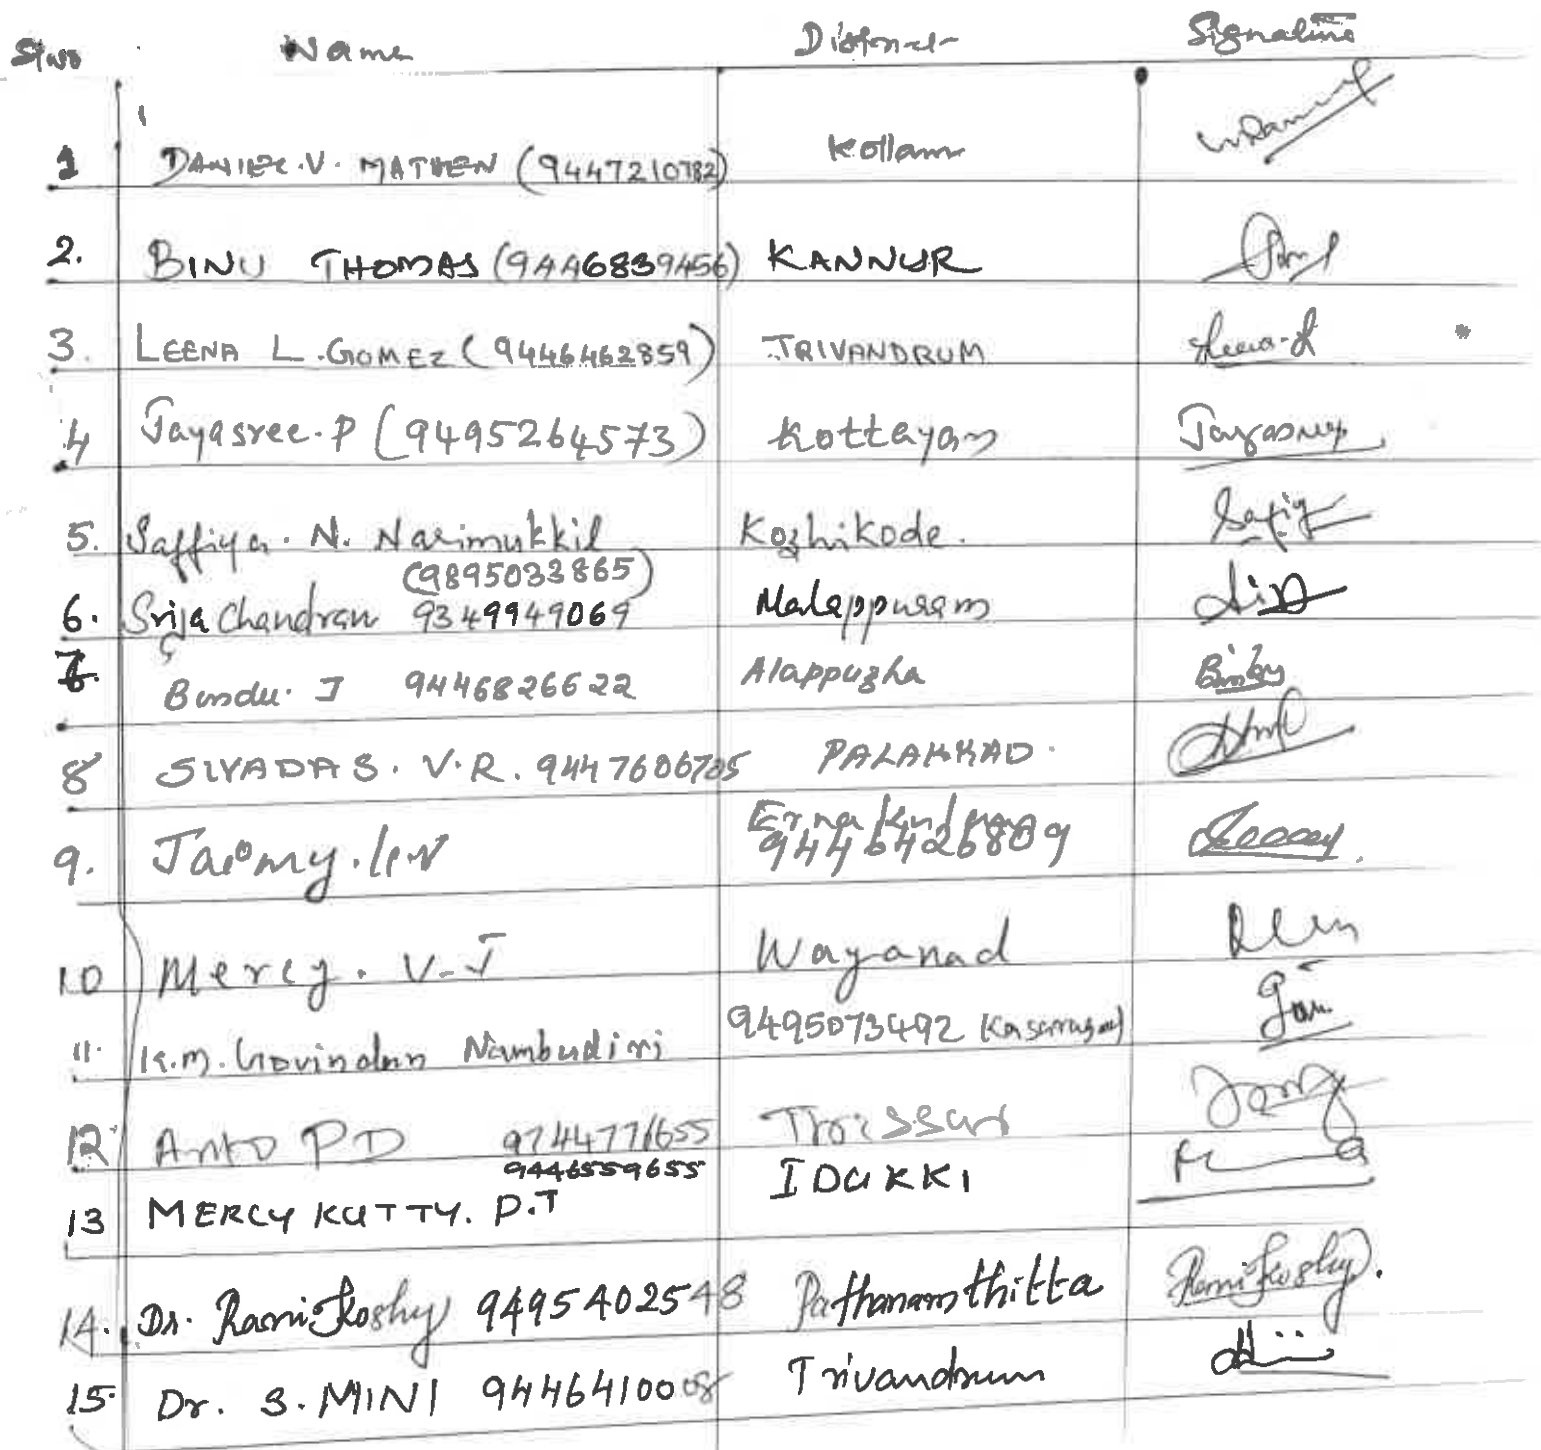 Sl No Name District Signature
1 DANIEL.V. MATHEW (9447210782) Kollam
2. BINU THOMAS (9446839456) KANNUR
3. LEENA L.GOMEZ (9446462859) TRIVANDRUM Leena.L
4 Jayasree.P (9495264573) Kottayam Jayasree
5. Saffiya. N. Narimukkil Kozhikode.
(9895033865)
6. Srija Chandran 9349949069 Malappuram
7. Bindu. J 9446826622 Alappuzha
8 SIVADAS. V.R. 9447606705 PALAKKAD.
9. Ernakulam
9446426809
10 Mercy. V.J Wayanad
11. K.M. Govindan Nambudiri 9495073492 (Kasaragod)
12 Anto PD 9744771655 Thrissur
9446559655
13 MERCY KUTTY. P.T IDUKKI
14. Dr. Rani Koshy 9495402548 Pathanamthitta Rani Koshy.
15. Dr. S. MINI 9446410008 Trivandrum